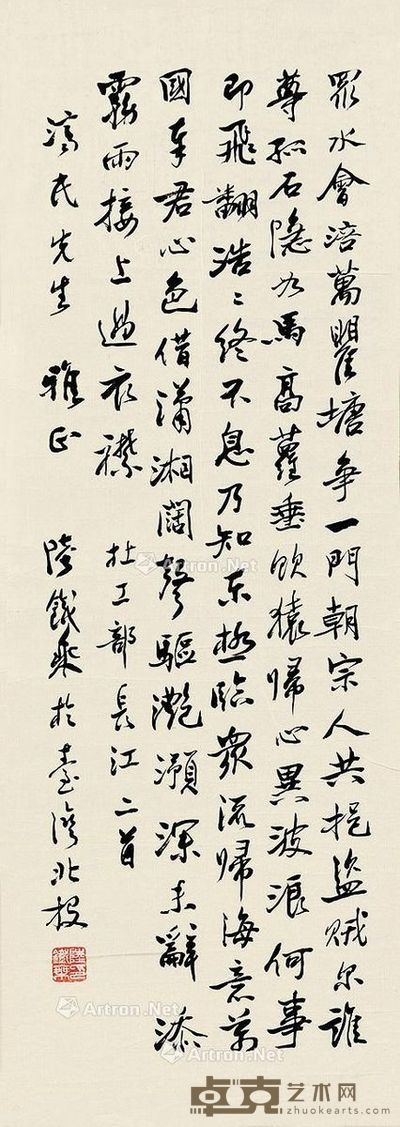 眾水會涪萬瞿塘爭一門朝宗人共挹盜賊尔誰
尊孤石隱如馬高蘿垂飲猿歸心異波浪何事
即飛翻浩〻終不息乃知東極臨衆流歸海意萬
國奉君心色借瀟湘闊聲驅灩澦深未辭添
霧雨接上過衣襟 杜工部長江二首
民先生 雅正 陸鐵乘於臺灣北投
Artron.Net
Artron.Net
Artron.Net
Artron.Net
卓克艺术网
zhuokearts.com